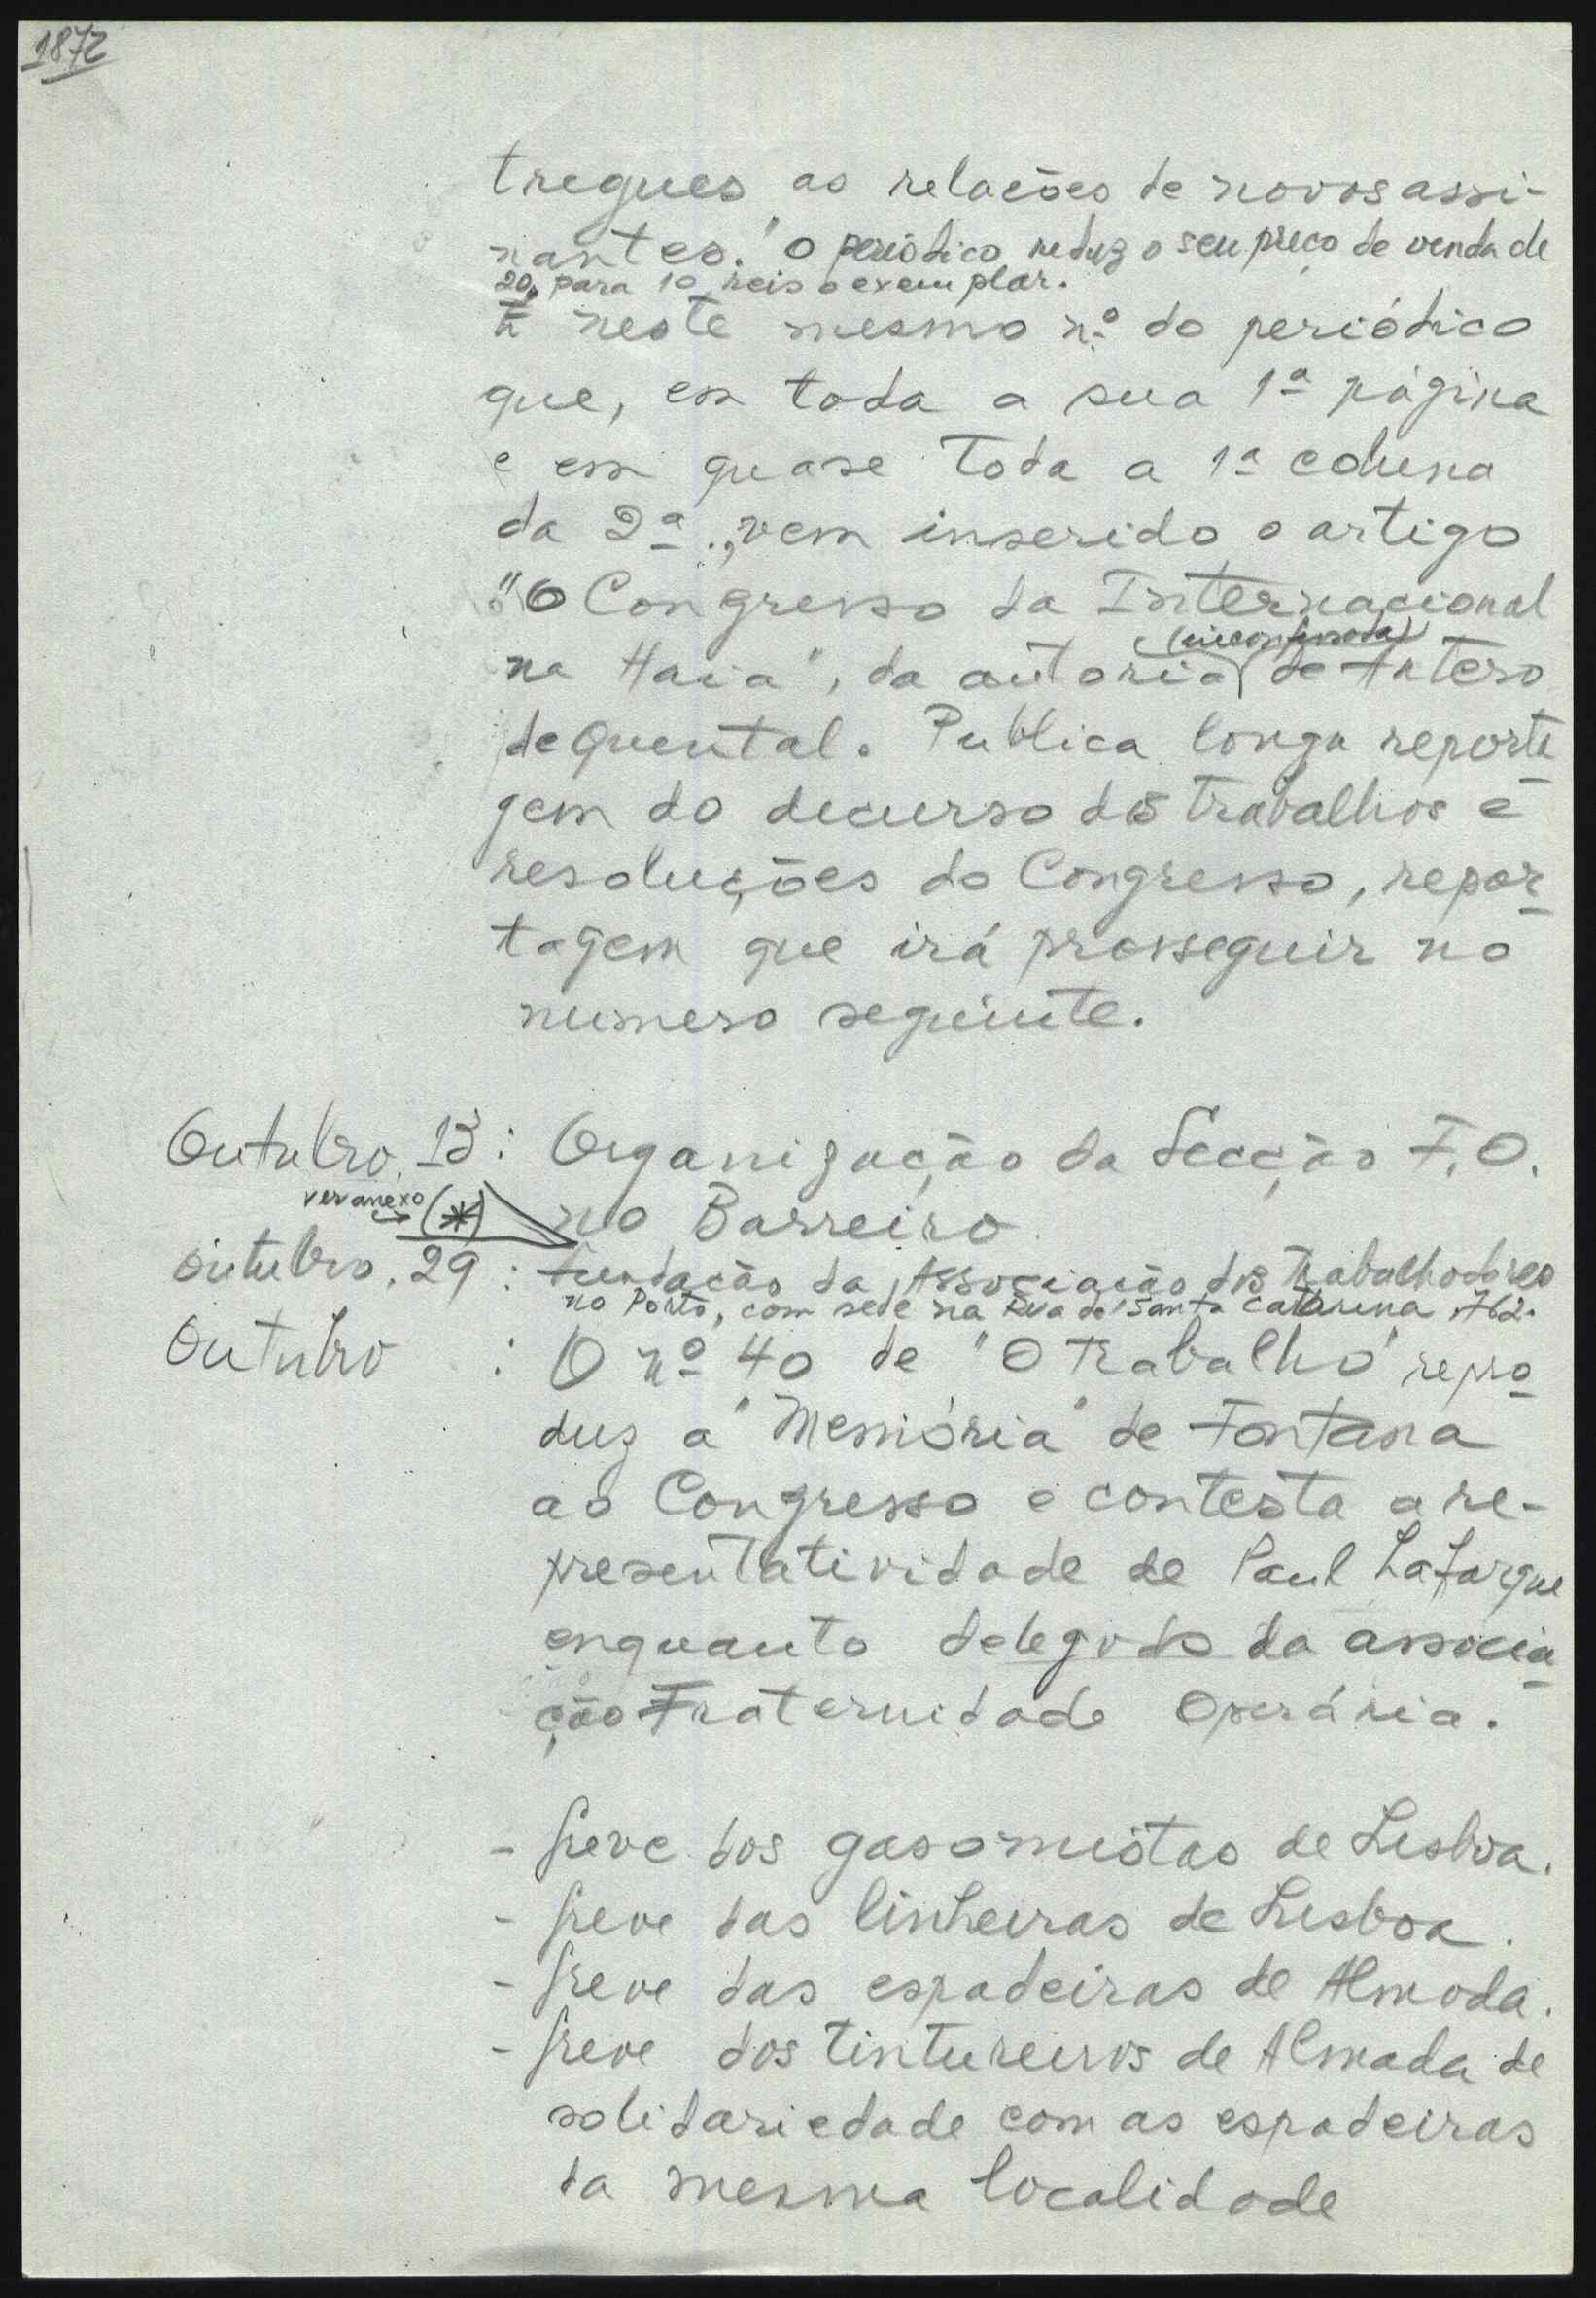 1872
tregues as relações de novos assi-
nantes." O periódico reduz o seu preço de venda de
20, para 10 reis o exemplar.
É neste mesmo nº do periódico
que, em toda a sua 1ª página
e em quase toda a 1ª coluna
da 2ª., vem inserido o artigo
"O Congresso da Internacional
(inconfessada)
na Haia", da autoria de Antero
de Quental. Publica longa reporta
gem do decurso dos trabalhos e
resoluções do Congresso, repor-
tagem que irá prosseguir no
numero seguinte.
Outubro, 13: Organização da Secção F.O.
ver anexo → (*) no Barreiro.
Outubro, 29: Fundação da Associação dos Trabalhadores
no Porto, com sede na Rua de Santa Catarina, 762.
Outubro : O nº 40 de "O Trabalho" repro-
duz a "Memória" de Fontana
ao Congresso e contesta a re-
presentatividade de Paul Lafargue
enquanto delegado da associa-
ção Fraternidade Operária.
- Greve dos gasomistas de Lisboa.
- Greve das linheiras de Lisboa.
- Greve das espadeiras de Almada.
- Greve dos tintureiros de Almada de
solidariedade com as espadeiras
da mesma localidade